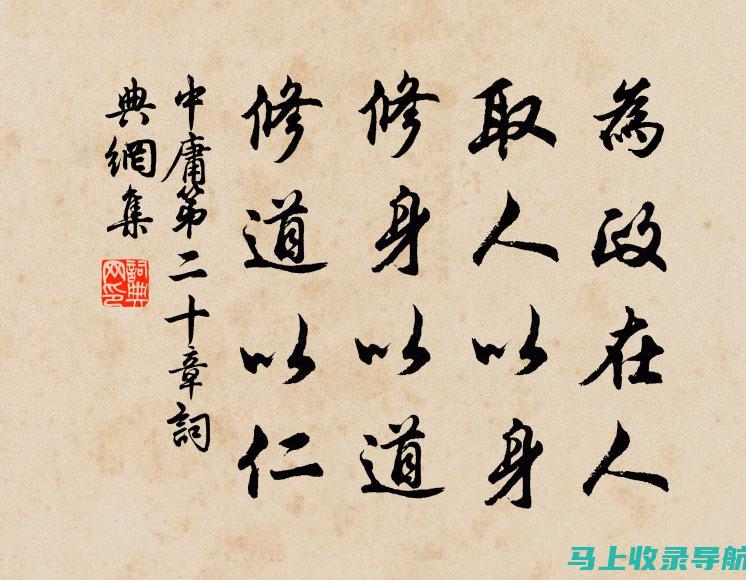 為政在人
取人以身
修身以道
修道以仁
中庸第二十章詞
典網集
詞典
网印
马上收录导航